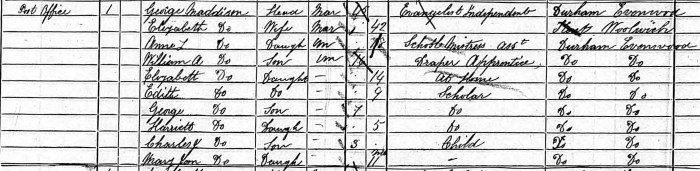 Post Office 1 George Maddison Head Mar 45 Evangelist Independent Durham Evenwood
Elizabeth Do Wife Mar 42 Kent Woolwich
Anne L Do Daugh Un School Mistress Asst Durham Evenwood
William A. Do Son Un 16 Draper Apprentice Do Do
Elizabeth Do Daugh — 14 At Home Do Do
Edith Do Do — 9 Scholar Do Do
George Do Son — 7 Do Do Do
Harriett Do Daugh — 5 Do Do Do
Charles Do Son — 3 Child Do Do
Mary Do Daugh — 11 — Do Do